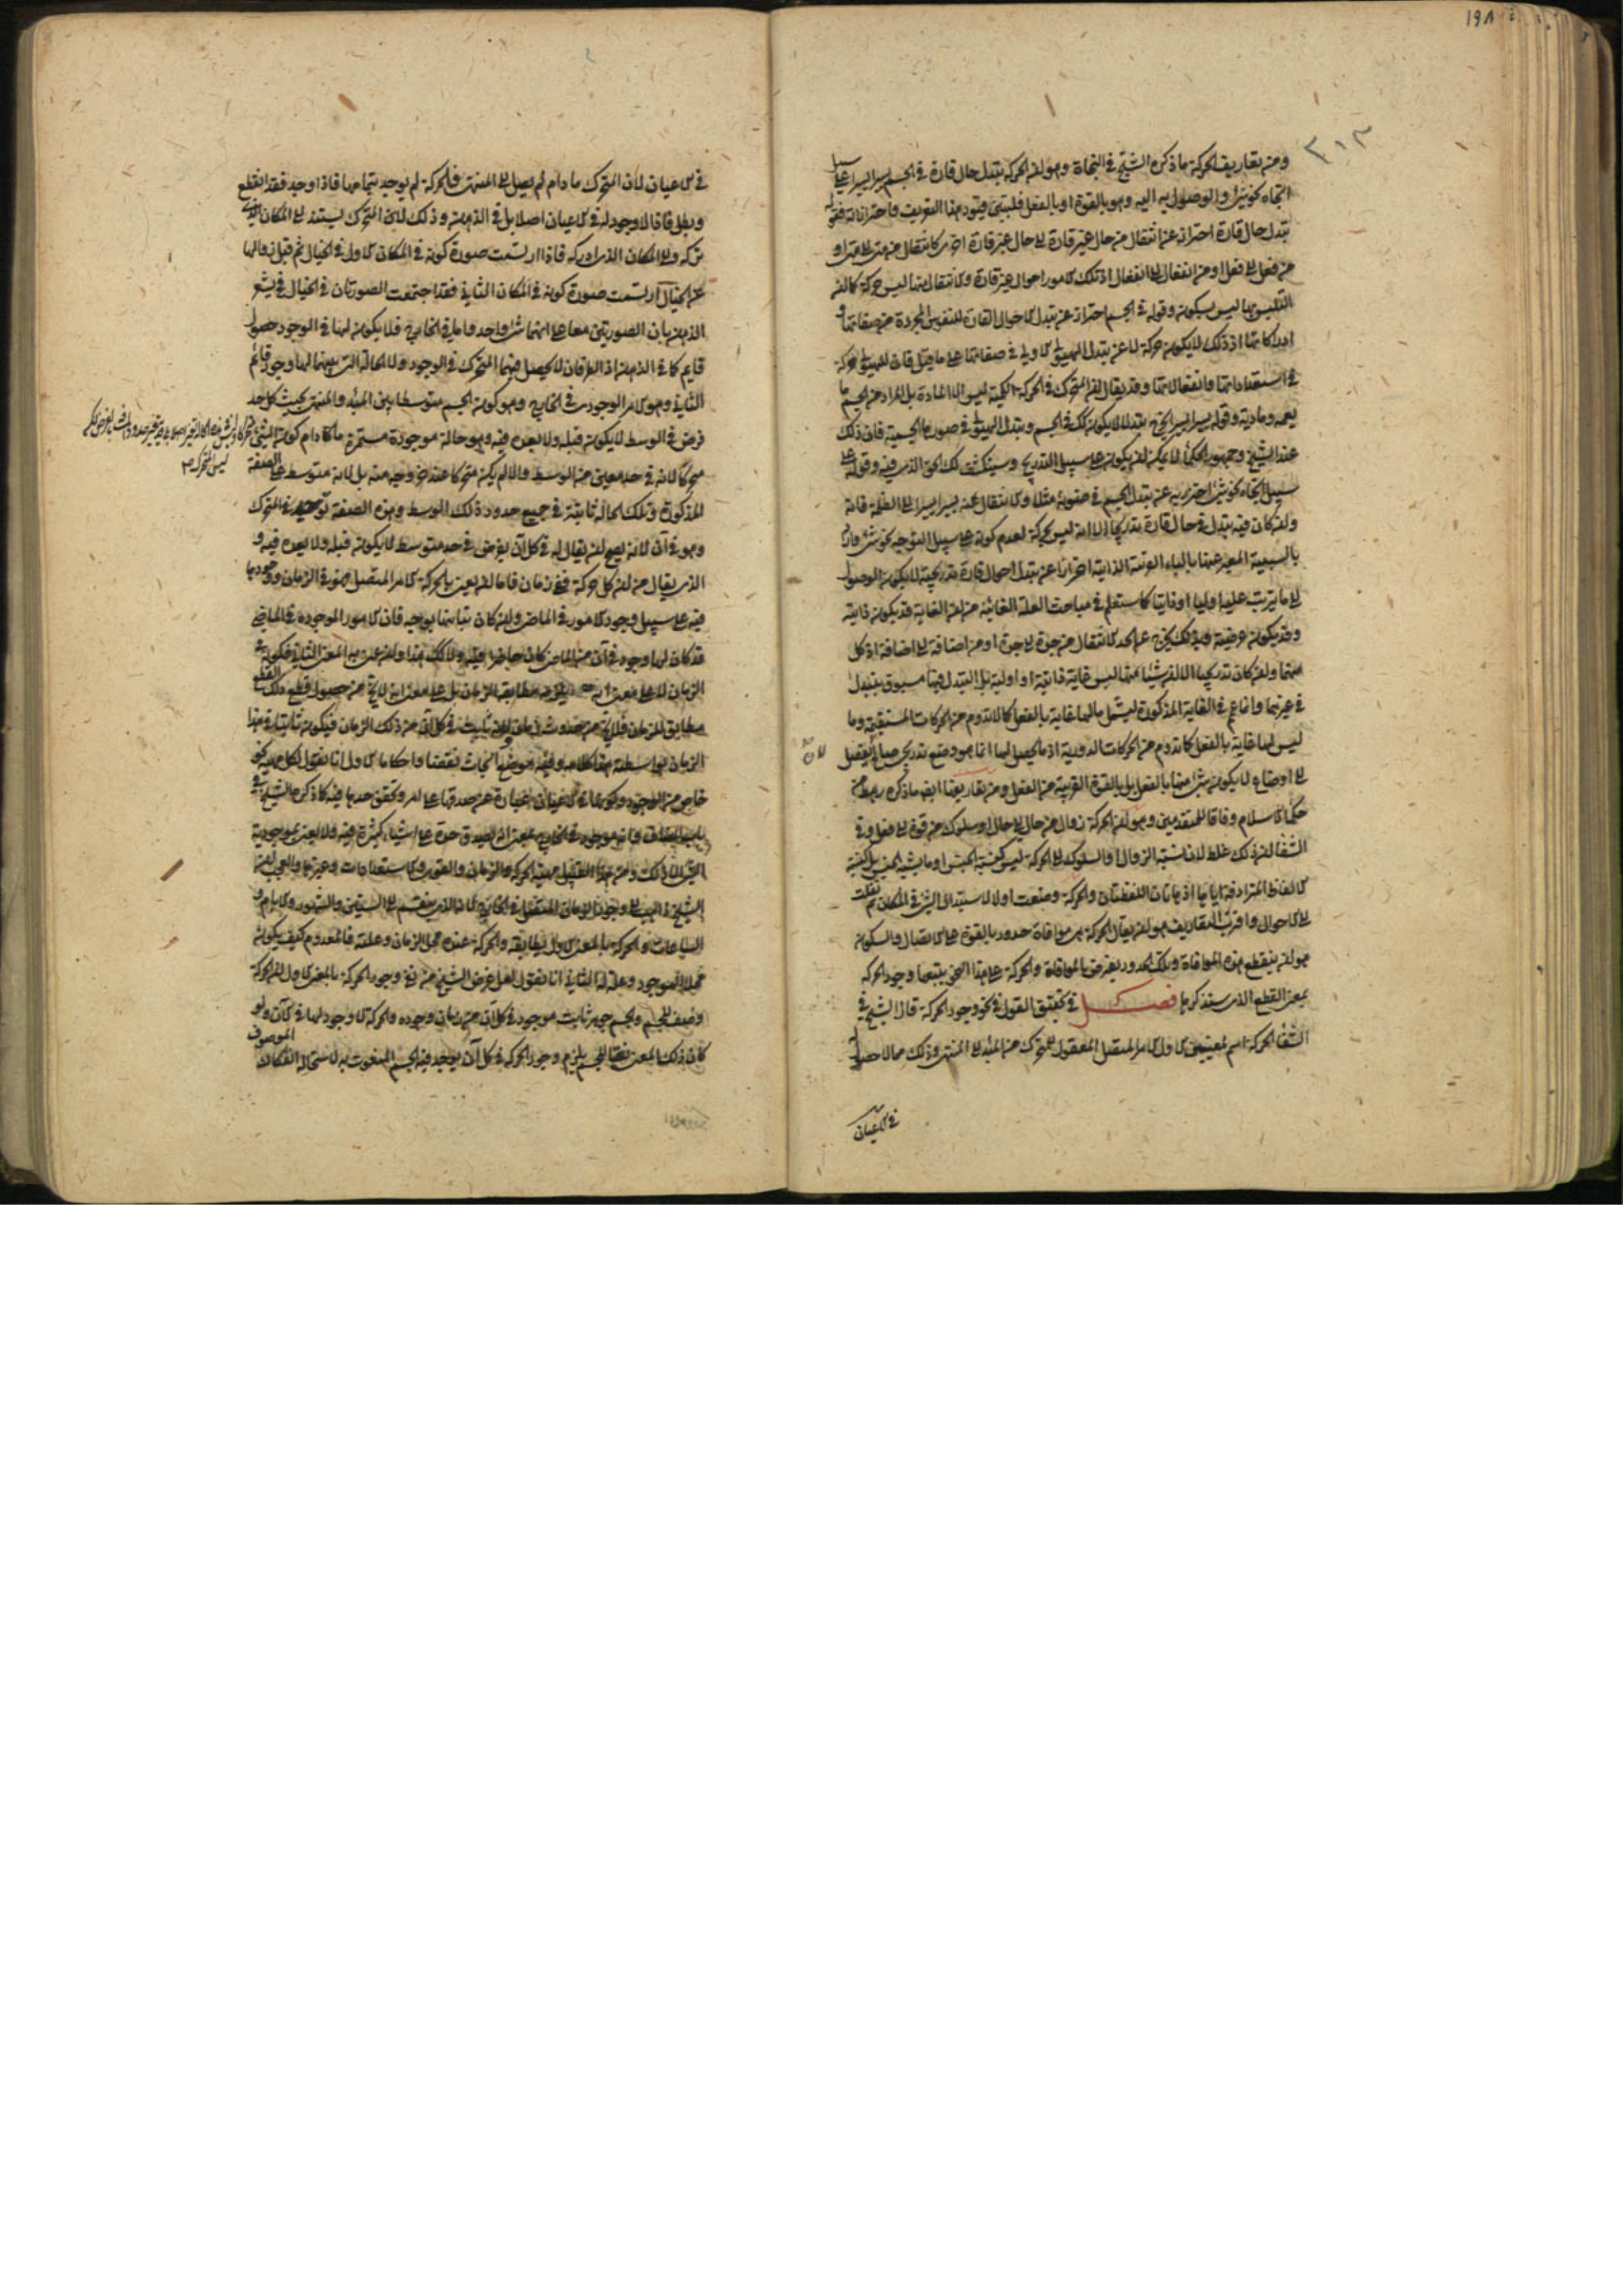 ١٩٨
٣١٣
ومن تعاريف الحركة ما ذكره الشيخ في النجاة وهو ان الحركة تبدل حال قارة في الجسم يسيرا يسيرا على سبيل
اتجاه نحو شئ والوصول به اليه وهو بالقوة او بالفعل فلنبين قيود هذا التعريف واحترازاته فقوله
تبدل حال قارة احتراز عن انتقال من حال غير قارة الى حال غير قارة اخرى كانتقال من متى الى متى او
من فعل الى فعل او من انفعال الى انفعال اذ تلك الامور احوال غير قارة والانتقال منها ليس حركة كما ان
التلبس بها ليس بسكون وقوله في الجسم احتراز عن تبدل الاحوال القارة للنفوس المجردة من صفاتها و
ادراكاتها اذ ذلك لا يكون حركة لا عن تبدل الهيولى الاولى في صفاتها على ما قيل فان للهيولى حركة
في استعداداتها وانفعالاتها وقد يقال ان المتحرك في الحركة الكمية ليس الا المادة بل المراد من الجسم ما
يعمه ومادته وقوله يسيرا يسيرا يخرج تبدلا لا يكون كك في الجسم وتبدل الهيولى في صورها الجسمية فان ذلك
عند الشيخ وجمهور الحكماء لا يمكن ان يكون على سبيل التدريج وسينكشف لك الحق الذي فيه وقوله على
سبيل اتجاه نحو شئ احترز به عن تبدل الجسم في ضوئه مثلا والانتقال عنه يسيرا يسيرا الى الظلمة فانه
وان كان فيه تبدل في حال قارة تدريجا الا انه ليس بحركة لعدم كونه على سبيل التوجه نحو شئ واراد
بالسببية المعبر عنها بالباء القريبة الذاتية احترازا عن تبدل احوال قارة تدريجية لا يكون الوصول
الى ما يترتب عليها اوليا او ذاتيا كما ستعلم في مباحث العلة الغائية من ان الغاية قد يكون ذاتية
وقد يكون عرضية وبذلك يخرج عن الحد الانتقال من جدة الى جدة او من اضافة الى اضافة اذ كل
منهما وان كان تدريجيا الا ان شيئا منهما ليس غاية ذاتية او اولية بل التبدل فيهما مسبوق بتبدل
في غيرهما وانما عم في الغاية المذكورة ليشمل ما لها غاية بالفعل كما لا تدوم من الحركات المستقيمة وما
ليس لها غاية بالفعل كما تدوم من الحركات الدورية اذ ما يحصل لها انما هو وضع تدريجي
الى اوضاع لا يكون شئ منها بالفعل بل بالقوة القريبة من الفعل ومن تعاريفها ايضا ما ذكره رهط من
حكماء الاسلام وفاقا للمتقدمين وهو ان الحركة زوال من حال الى حال او سلوك من قوة الى فعل وفي
الشفا ان ذلك غلط لان نسبة الزوال والسلوك الى الحركة ليس كنسبة الجنس او ما يشبه الجنس بل كنسبة
الالفاظ المترادفة اياها اذ هاتان اللفظتان والحركة وضعت اولا لاستبدال الشئ في المكان ثم نقلت
الى الاحوال واقرب التعاريف هو ان يقال الحركة هي موافاة حدود بالقوة على الاتصال والسكون
هو ان ينقطع هذه الموافاة وتلك الحدود يفرض بالموافاة والحركة على هذا النحو يتبعها وجود الحركة
بمعنى القطع الذي سنذكرها فصل في تحقيق القول في نحو وجود الحركة قال الشيخ في
الشفا الحركة اسم لمعنيين الاول الامر المتصل المعقول للمتحرك من المبدء الى المنتهى وذلك مما لا حصول له
في الاعيان
في الاعيان لان المتحرك ما دام لم يصل الى المنتهى فالحركة لم يوجد بتمامها فاذا وجد فقد انقطع
وبطل فاذا لا وجود له في الاعيان اصلا بل في الذهن وذلك لان المتحرك يستند الى المكان الذي
تركه والى المكان الذي ادركه فاذا ارتسمت صورة كونه في المكان الاول في الخيال ثم قبل زوالها
عن الخيال ارتسمت صورة كونه في المكان الثاني فقد اجتمعت الصورتان في الخيال فيشعر
الذهن بان الصورتين معا على انهما شئ واحد واما في الخارج فلا يكون لها في الوجود حصول
قايم كما في الذهن اذ الطرفان لا يحصل فيهما المتحرك في الوجود ولا الحالة التي بينهما لها وجود قائم
الثاني وهو الامر الوجودي في الخارج وهو كون الجسم متوسطا بين المبدء والمنتهى بحيث كل حد
فرض في الوسط لا يكون قبله ولا بعده فيه وهو حالة موجودة مستمرة ما دام كون الشئ
متحركا لانه في حد معين من الوسط والا لم يكن متحركا عند خروجه منه بل لانه متوسط على الصفة
المذكورة وتلك الحالة ثابتة في جميع حدود ذلك الوسط وهذه الصفة توجد في المتحرك
وهو في آن لانه يصح ان يقال له في كل آن يفرض في حد متوسط لا يكون قبله ولا بعده فيه و
الذي يقال من ان كل حركة ففي زمان فاما ان يعنى بالحركة الامر المتصل فهو في الزمان ووجودها
فيه على سبيل وجود الامور في الماضي وان كان تباينها بوجه فان الامور الموجودة في الماضي
قد كان لها وجود في آن من الماضي كان حاضرا فيه ولا كك هذا وان عنى به المعنى الثاني فكونه في
الزمان لا على معنى انه يلزمه مطابقة الزمان بل على معنى انه لا يخ من حصول قطع ذلك القطع
مطابق للزمان فلا يخ من حدوث زمان لانه ثابت في كل آن من ذلك الزمان فيكون ثابتا في هذا
الزمان بواسطة هذا كلامه وفيه موضع ابحاث نقضا واحكاما الاول انا نقول لكل مهية نحو
خاص من الوجود وكونها في الاعيان عبارة عن صدقها على امر وتحقق حدها فيه كما ذكره الشيخ في
باب المضاف وانه موجود في الخارج بمعنى انه يصدق حده على اشياء كثيرة فيه ولا يعنى بموجودية
الشئ الا ذلك ومن هذا القبيل مهية الحركة والزمان والقوى والاستعدادات وغيرها والعجب ان
الشيخ ذاهب الى وجود الزمان المتصل في الخارج لانه الذي ينقسم الى السنين والشهور والايام و
الساعات والحركة بالمعنى الاول يطابقه والحركة عنده محل الزمان وعلته فالمعدوم كيف يكون
محلا للموجود وعلة له الثاني انا نقول لعل غرض الشيخ من نفي وجود الحركة بالمعنى الاول ان الحركة
وصف للجسم والجسم جوهر ثابت موجود في كل آن من زمان وجوده والحركة لا وجود لها في الآن ولو
كان ذلك المعنى نعتا للجسم يلزم وجود الحركة في كل آن يوجد فيه الجسم المنعوت به لاستحالة انفكاك الموصوف